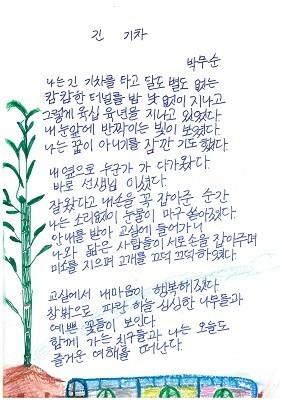 긴 기차
박무순
나는 긴 기차를 타고 달도 별도 없는
캄캄한 터널을 밤 낮 없이 지나고
그렇게 육십 육년을 지나고 있었다.
내 눈앞에 반짝이는 빛이 보였다.
나는 꿈이 아니기를 잠깐 기도했다.
내 옆으로 누군가 가 다가왔다.
바로 선생님 이셨다.
잘왔다고 내손을 꼭 잡아준 순간
나는 소리없이 눈물이 마구 쏟아졌다.
안내를 받아 교실에 들어가니
나와 닮은 사람들이 서로 손을 잡아주며
미소를 지으며 고개를 끄덕 끄덕 하였다.
교실에서 내마음이 행복해졌다
창밖으로 파란 하늘 싱싱한 나무들과
예쁜 꽃들이 보인다.
함께 가는 친구들과 나는 오늘도
즐거운 여행를 떠난다.